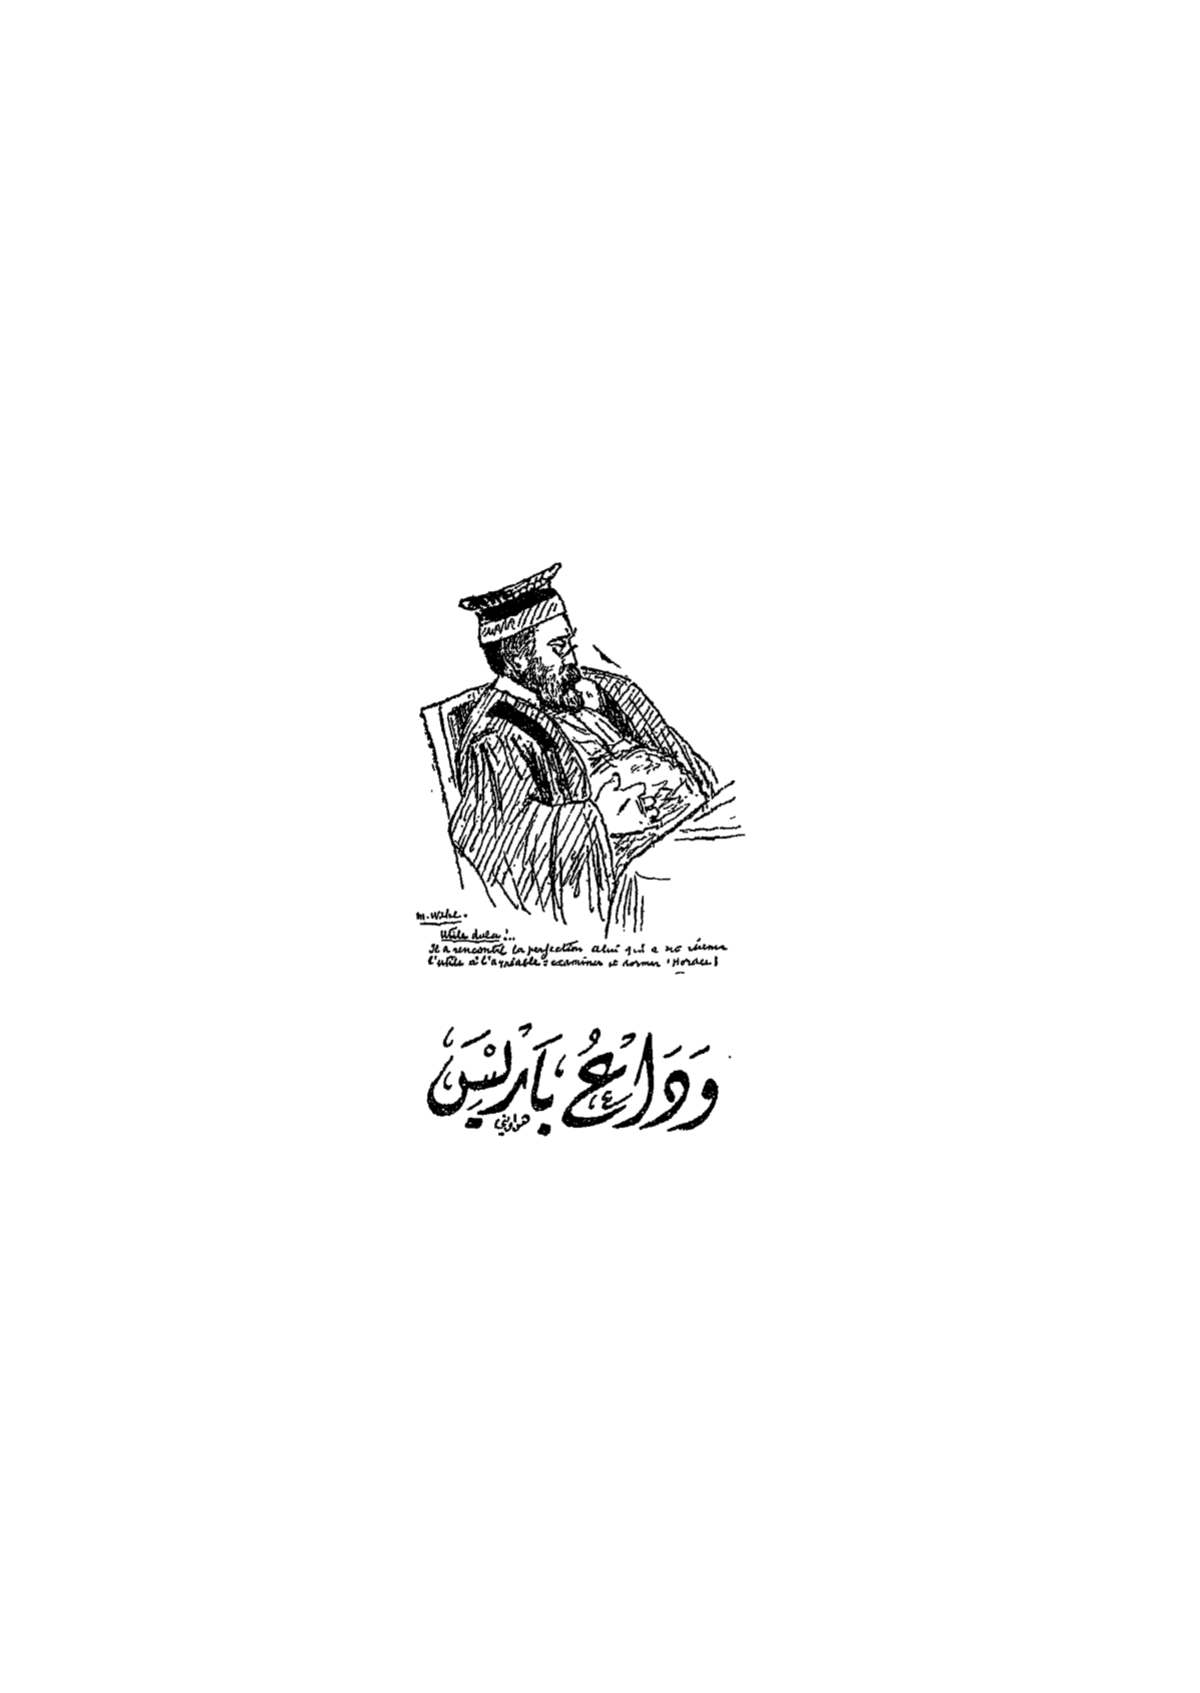 M. Wihl.
Utile dulci !..
Il a rencontré la perfection celui qui a su réunir
l'utile à l'agréable : examiner et dormir (Horace)
وَدَاعُ بَارِيْسَ
هواويني